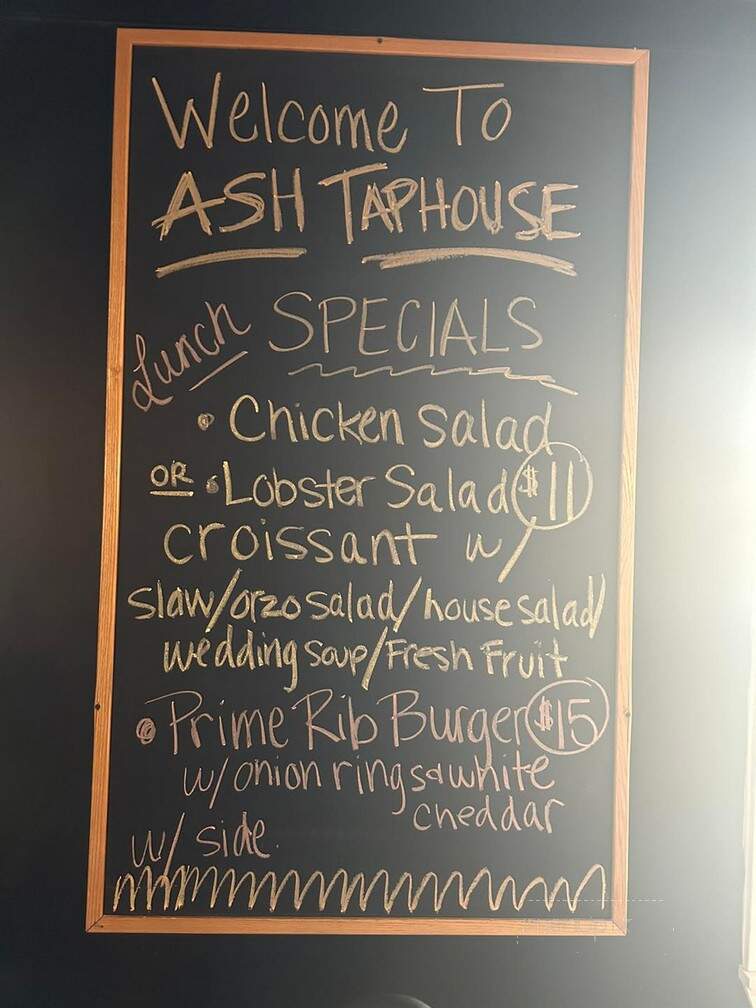 Welcome To
ASH TAPHOUSE
Lunch SPECIALS
• Chicken Salad
OR • Lobster Salad $11
croissant w/
slaw/orzo salad/house salad/
wedding soup/Fresh Fruit
• Prime Rib Burger $15
w/onion rings & white
cheddar
w/ side